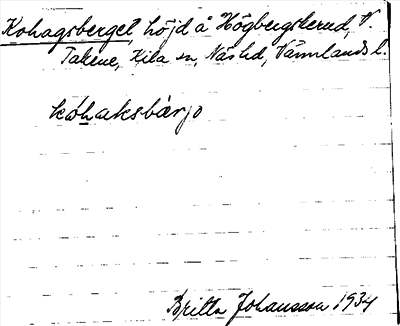 Kohagsberget, höjd å Högbergskerud, V.
Takene, Kila sn, Näs hd, Värmlands l.
kóhaksbàrjo
Britta Johansson 1934